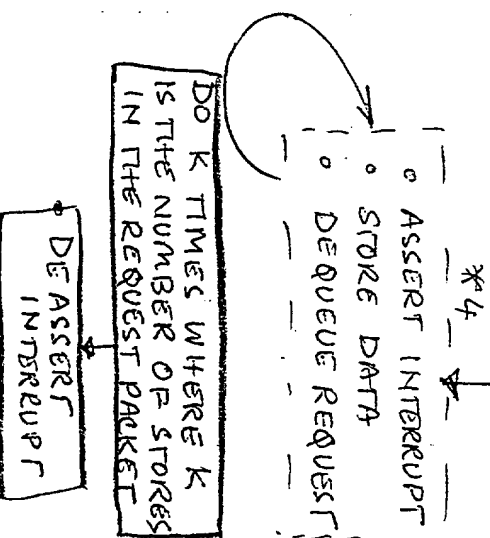 *4
• ASSERT INTERRUPT
• STORE DATA
• DEQUEUE REQUEST
DO K TIMES WHERE K
IS THE NUMBER OF STORES
IN THE REQUEST PACKET
• DEASSERT
INTERRUPT